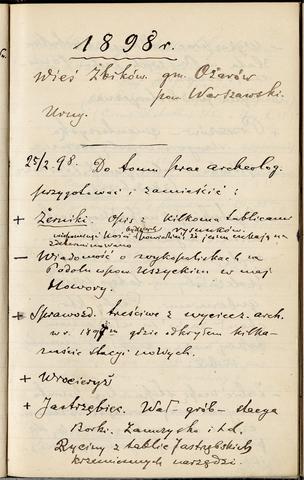 1898 r.
Wieś Żbików. gm. Ożarów
pow. Warszawski.
Urny.
25/2. 98. Do tomu prac archeolog.
przygotować i zamieścić:
+ Żerniki. Opis z kilkoma tablicami
rysunków.
— Wiadomość o wykopaliskach na
Podolu w pow. Uszyckim w maj
Howory.
+ Sprawozd. treściwe z wyciecz. arch.
w r. gdzie odkryłem kilka-
naście stacyj nowych.
+ Wrocieryż
+ Jastrzębiec. Wał - grób - stacya
Borki. Zamczysko i t.d.
Ryciny z tablic Jastrzębskich
krzemiennych narzędzi.